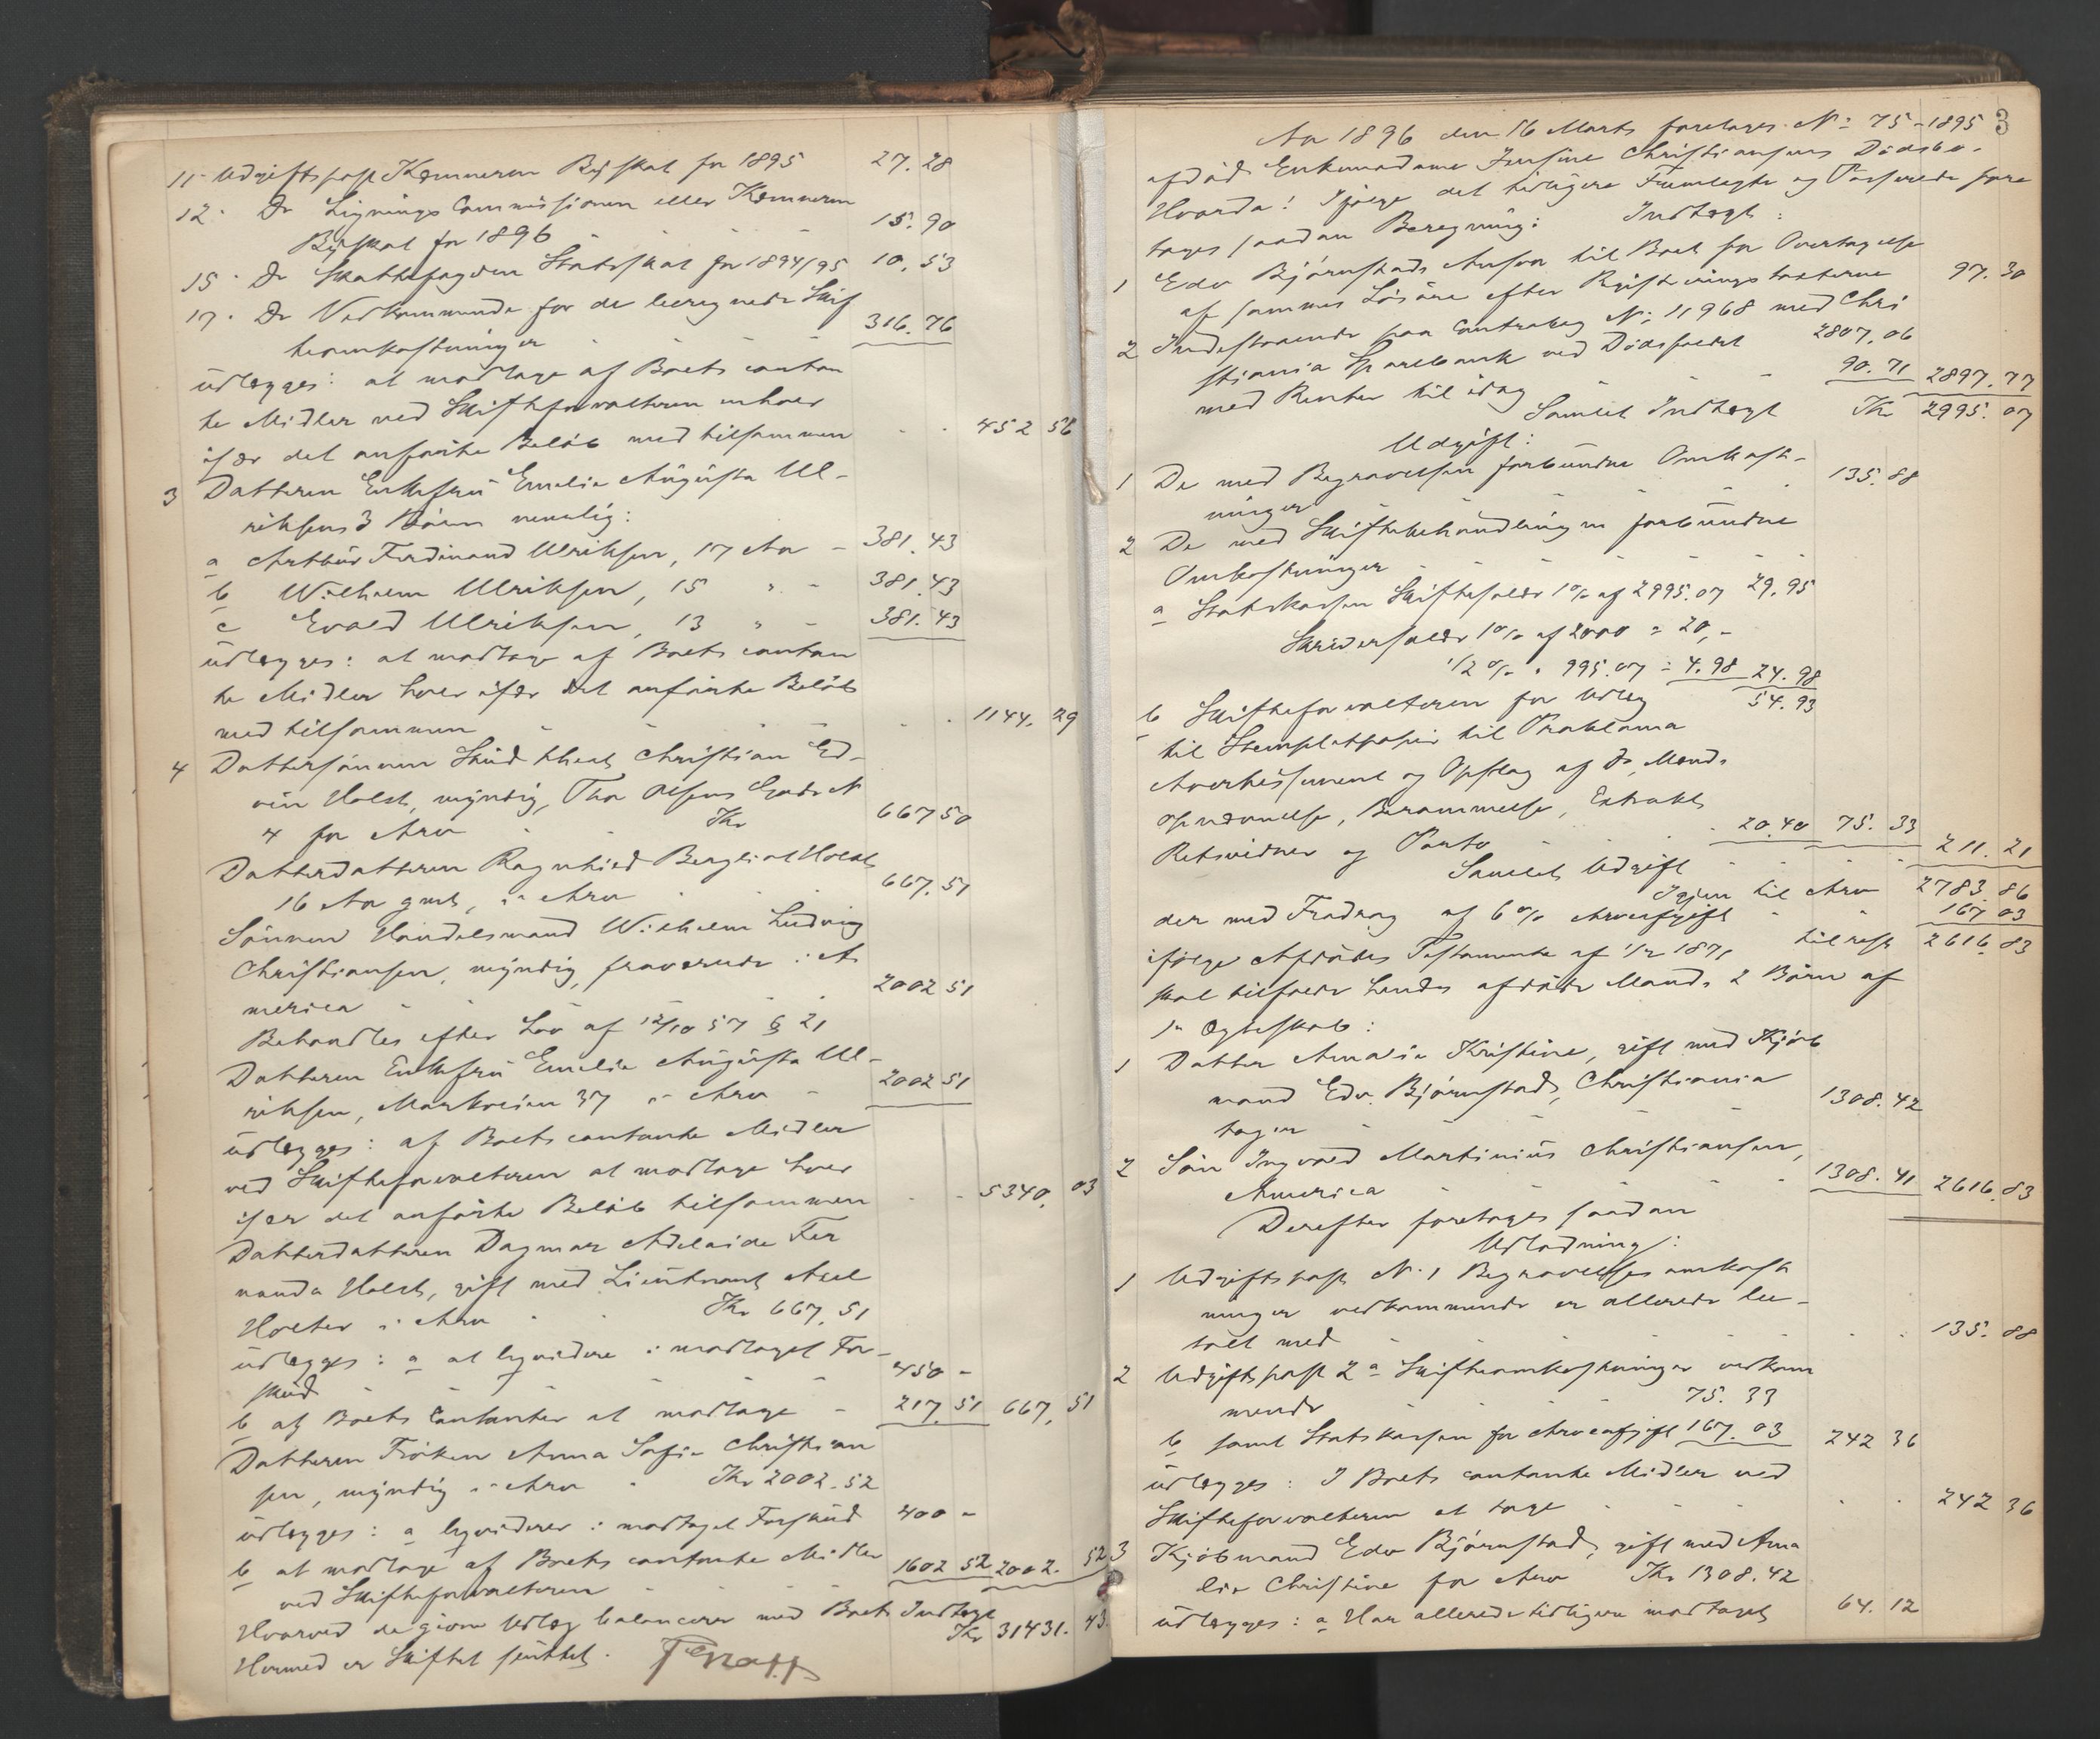 11 - Udgiftspost Kæmneren Byskat for 1895 27.28
12 - Do Ligningscommissionen eller Kæmneren
Byskat for 1896 - - - - 15.90
15 - Do Skattefogden Statsskat for 1894/95 10.53
17 - Do Vedkommende for de beregnede Skif
teomkostninger - 316.76
udlægges: at modtage af Boets contan
te Midler ved Skifteforvalteren enhver
især det anførte Beløb med tilsammen - - 452 56
3 Datteren Enkefru Emilie Augusta Ul-
riksens 3 Børn nemlig:
a Arthur Ferdinand Ulriksen, 17 Aar - 381.43
b Wilhelm Ulriksen, 15 " - 381.43
c Evald Ulriksen, 13 " - 381.43
udlægges: at modtage af Boets contan
te Midler hver især det anførte Beløb
med tilsammen - - - - - 1144.29
4 Dattersønnen Stud Christian Ed-
vin Holst, myndig, Thor Olsens Gade N
4 for Arv - Kr 667 50
Datterdatteren Ragnhild Bergliot Holst
16 Aar gml, i Arv - - 667.51
Sønnen Handelsmand Wilhelm Ludvig
Christiansen, myndig, fraværende i A
merica - - - - - 2002 51
Behandles efter Lov af 12/10 57 § 21
Datteren Enkefru Emilie Augusta Ul-
riksen, Markveien 37 i Arv - 2002 51
udlægges: af Boets contante Midler
ved Skifteforvalteren at modtage hver
især det anførte Beløb tilsammen - - 5340.03
Datterdatteren Dagmar Adelaide Fer
nanda Holst, gift med Lieutnant Axel
Holter i Arv - - Kr 667.51
udlægges: a at liqvidere i modtaget For-
skud - - - - - 450 -
b af Boets Contanter at modtage - 217.51 667.51
Datteren Frøken Anna Sofie Christian
sen, myndig i Arv - Kr 2002.52
udlægges: a liqviderer i modtaget Forskud 400 -
b at modtage af Boets contante Midler
ved Skifteforvalteren - - - 1602 52 2002.52
Hvorved de givne Udlæg balancerer med Boets Indtægt
Kr 31431.43
Hermed er Skiftet sluttet.
3
Aar 1896 den 16 Marts foretages No 75 - 1895
afdød Enkemadame Jensine Christiansens Dødsbo.
Hvorda! Ifølge det tidligere Fremlagte og Passerede fore
tages saadan Beregning: Indtægt:
1 Edv Bjørnstads Ansvar til Boet for Overtagelse
af sammes Løsøre efter Registreringstaxterne 97.30
2 Indestaaende paa Contrabog No 11968 med Chri
stiania Sparebank ved Dødsfaldet 2807.06
med Renter til idag - - - 90.71 2897.77
Samlet Indtægt Kr 2995.07
Udgift:
1 De med Begravelsen forbundne Omkost-
ninger - - - - 135.88
2 De med Skiftebehandlingen forbundne
Omkostninger - - - - -
a Statskassen Skiftesalær 1% af 2995.07 29.95
Skriversalær 1% af 2000 = 20,-
1/2 % " 995.07 = 4.98 24.98
54.93
b Skifteforvalteren for Udlæg
til Stemplet papir til Proklama
Avertissement og Opslag af do, Mænds
opnævnelse, Berammelse, Extrakt
Retsvidner og Porto - - 20.40 75.33 211.21
Samlet Udgift - - -
Igjen til Arv 2783.86
der med Fradrag af 6% Arveafgift - " 167 03
til rest 2616.83
ifølge Afdødes Testamente af 1871
skal tilfalde hendes afdøde Mands 2 Børn af
1ste Ægteskab:
1 Datter Amalie Kristine, gift med Kjøb
mand Edv. Bjørnstad, Christiania
tager - - - - - 1308.42
2 Søn Ingvald Martinius Christiansen,
America - - - - 1308.41 2616.83
Derefter foretages saadan
Udlodning:
1 Udgiftspost N. 1 Begravelsesomkost
ninger vedkommende er allerede be-
talt med - - - - - - - 135.88
2 Udgiftspost 2 a Skifteomkostninger vedkom
mende 75.33
b samt Statskassen for Arveafgift 167.03 242 36
udlægges: I Boets contante Midler ved
Skifteforvalteren at tage - - - 242 36
3 Kjøbmand Edv Bjørnstad, gift med Ama
lie Christine for Arv Kr 1308.42
udlægges: a Har allerede tidligere modtaget 64.12